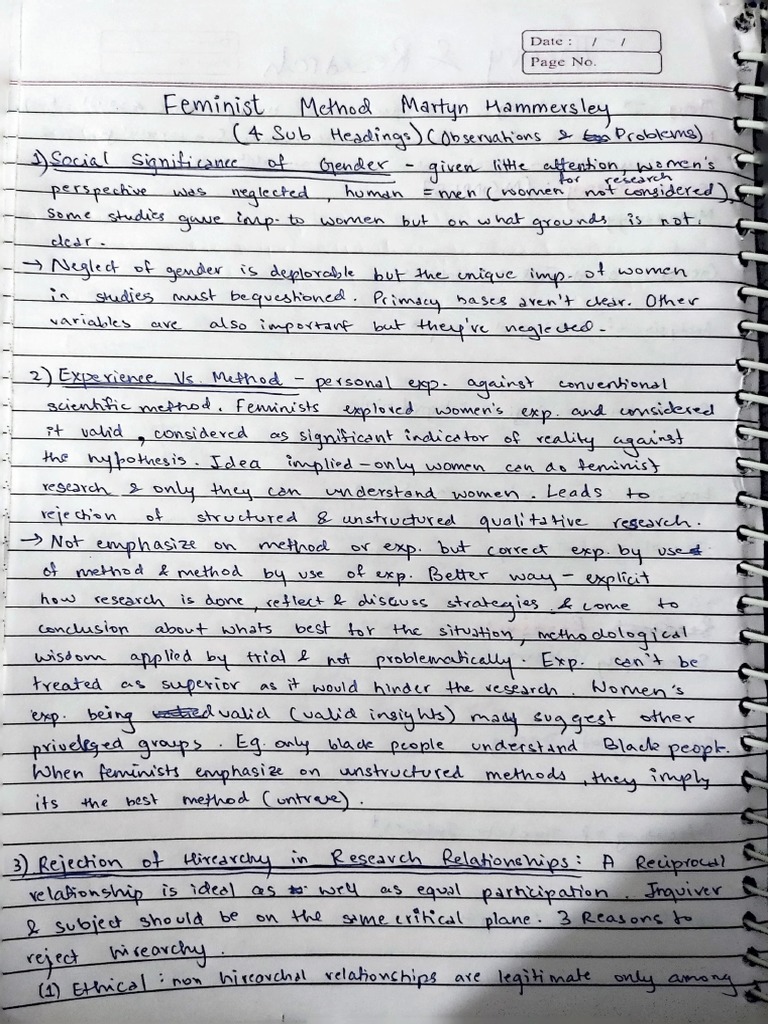 Date : / /
Page No.
Feminist Method Martyn Hammersley
(4 Sub Headings) (Observations & Problems)
1) Social Significance of Gender - given little attention, women's
perspective was neglected, human = men (women for research not considered),
some studies gave imp. to women but on what grounds is not
clear.
→ Neglect of gender is deplorable but the unique imp. of women
in studies must be questioned. Primacy bases aren't clear. Other
variables are also important but they're neglected.
2) Experience Vs. Method - personal exp. against conventional
scientific method. Feminists explored women's exp. and considered
it valid, considered as significant indicator of reality against
the hypothesis. Idea implied - only women can do feminist
research & only they can understand women. Leads to
rejection of structured & unstructured qualitative research.
→ Not emphasize on method or exp. but correct exp. by use
of method & method by use of exp. Better way - explicit
how research is done, reflect & discuss strategies & come to
conclusion about whats best for the situation, methodological
wisdom applied by trial & not problematically. Exp. can't be
treated as superior as it would hinder the research. Women's
exp. being valid (valid insights) may suggest other
priveleged groups. Eg. only black people understand Black peopl.
When feminists emphasize on unstructured methods, they imply
its the best method (untrue).
3) Rejection of Hirearchy in Research Relationships: A Reciprocal
relationship is ideal as well as equal participation. Inquirer
& subject should be on the same critical plane. 3 Reasons to
reject hirearchy.
(1) Ethical: non hirearchal relationships are legitimate only among